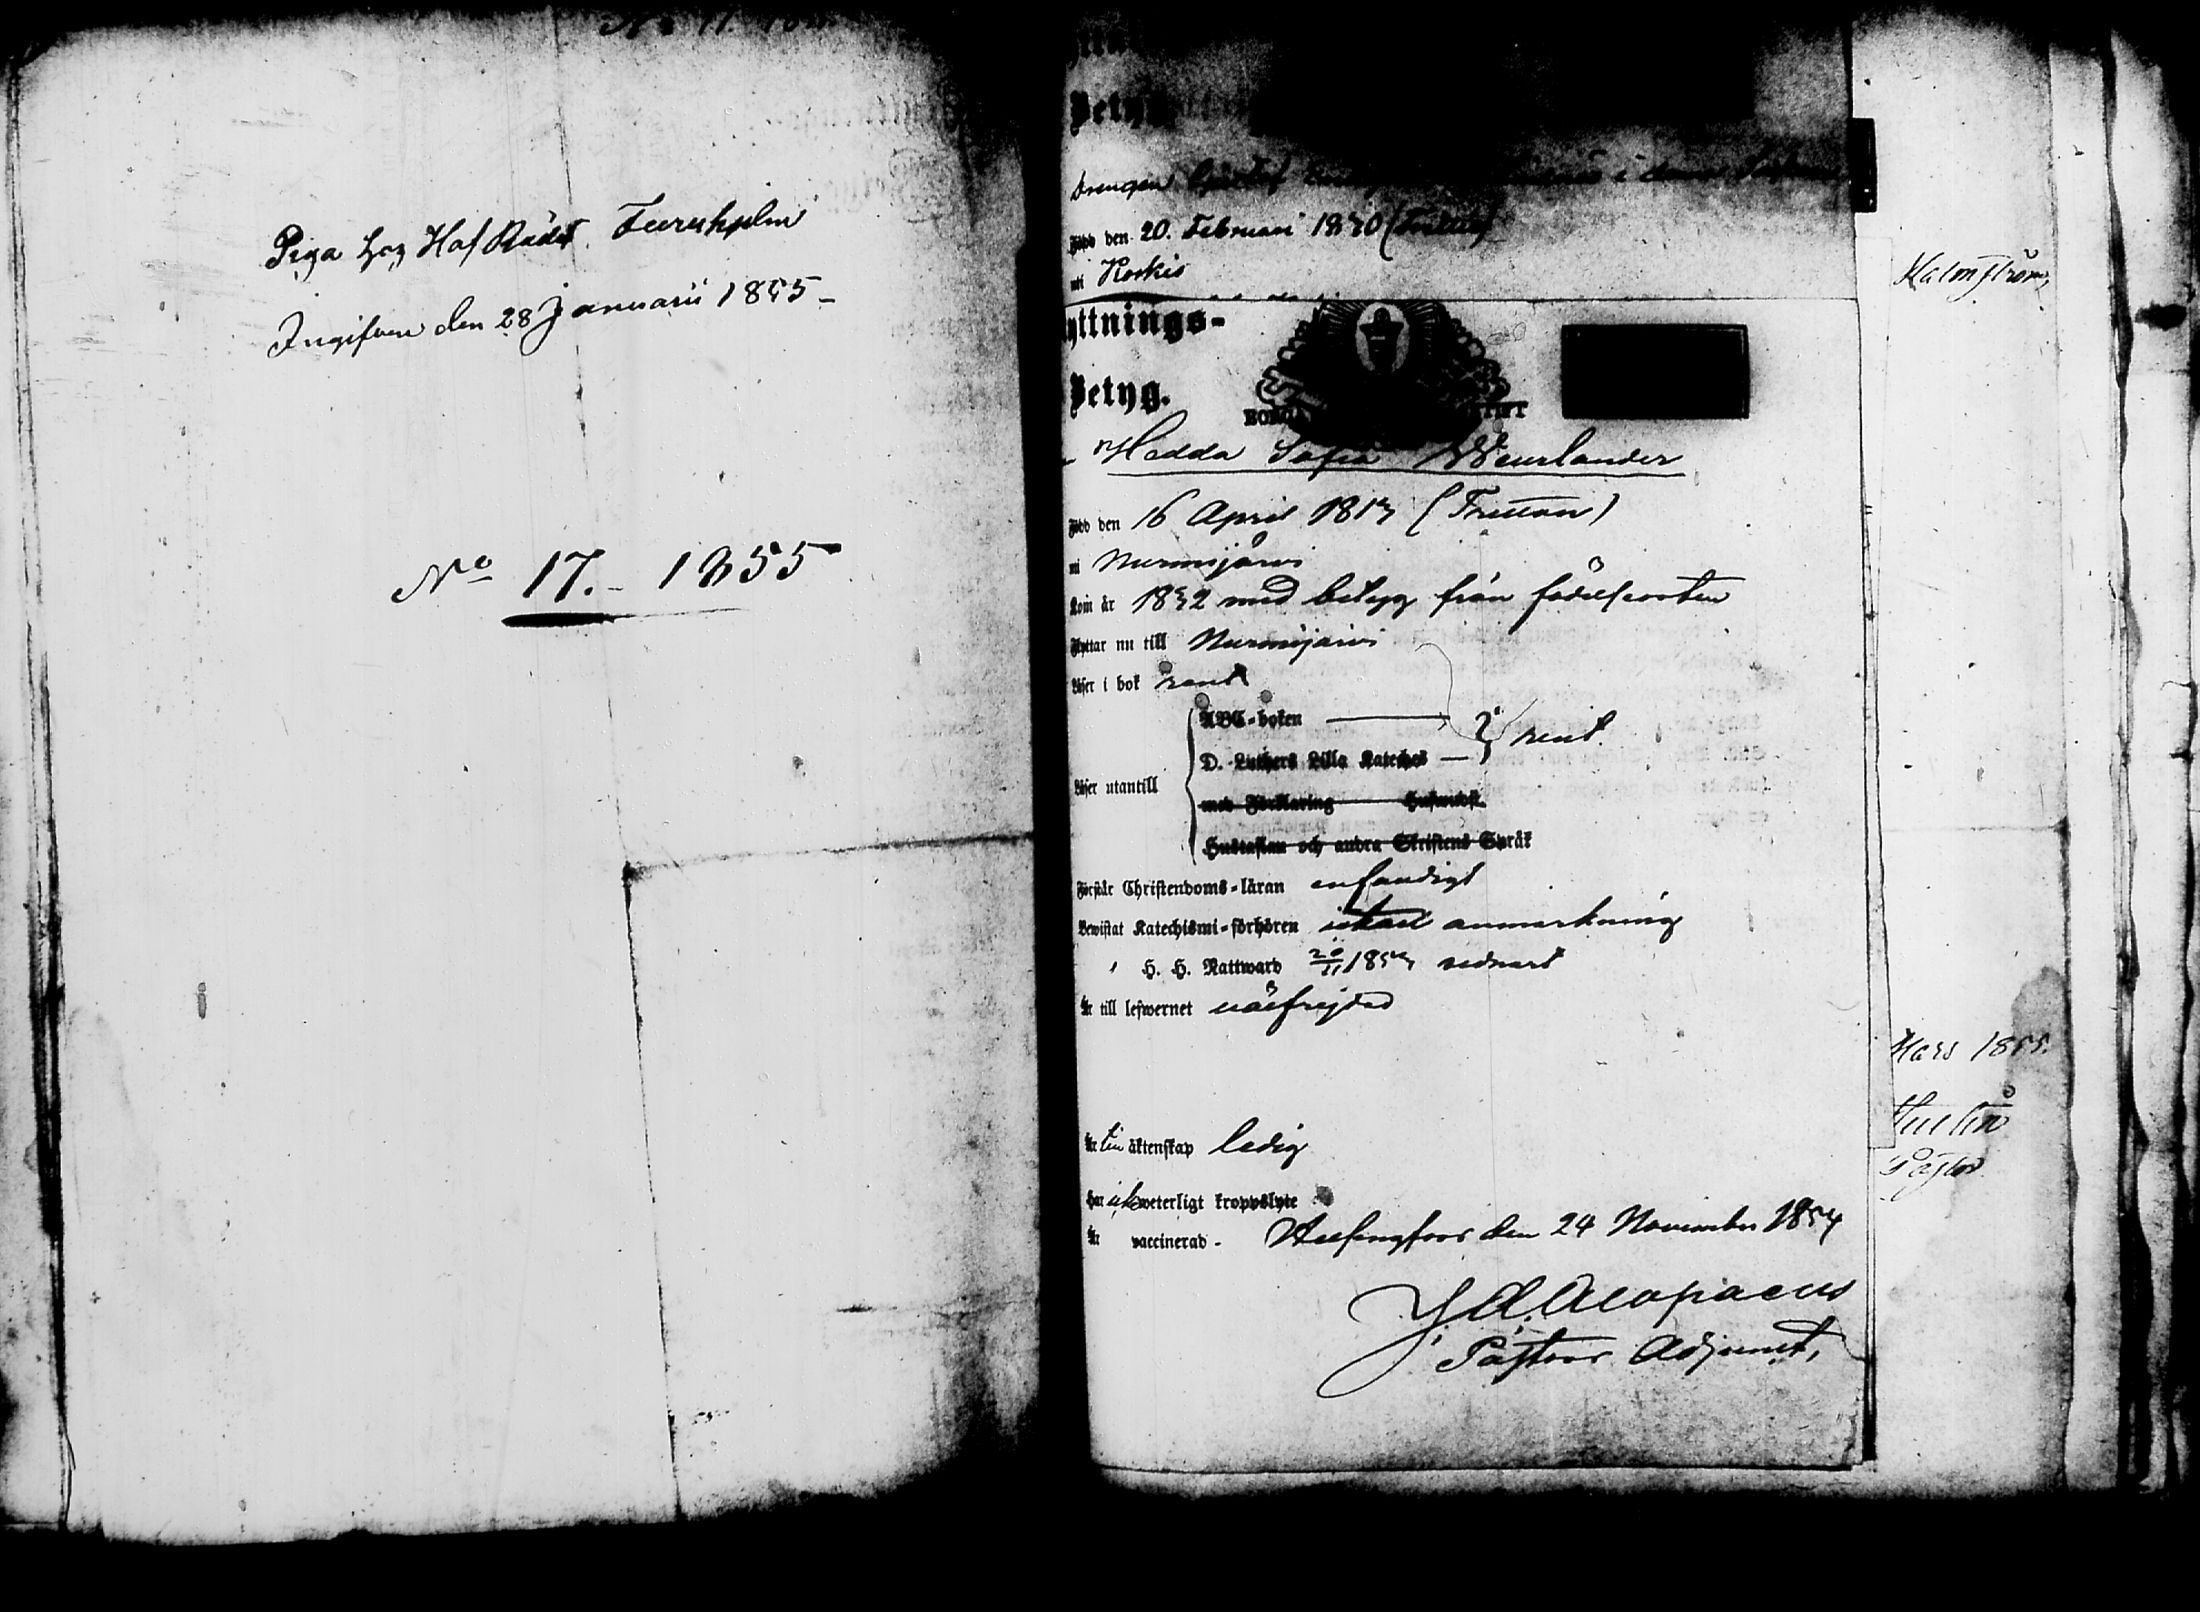 Piga hos Hof Rådet Furuhjelm
Ingifven den 28 Januarii 1855 -
No 17. - 1855
Betyg
Drengen
i denna
Född den 20. Februari 1830 (Trettio)
uti Koskis
yttnings-
Betyg.
Hedda Sofia Weurlander
Född den 16 April 1813 (Tretton)
uti Nurmijärvi
Kom år 1832 med betyg från födelseorten
Flyttar nu till Nurmijärvi
Läser i bok rent
ABC-boken
D. Luthers Lilla Kateches — rent.
Läser utantill
med Förklaring Husandst.
Hustaflan och andra Skriftens Språk
Förstår Christendoms-läran enfaldigt
Bewistat Katechismi-förhören utan anmärkning
" H. H. Nattward 20/11 1853 sednast
Är till lefwernet wälfrejdad
Är till äktenskap ledig
Har ick weterligt kroppslyte
Är vaccinerad - Helsingfors den 24 November 1854
J. A. Alopaeus
Pastors Adjunct,
Malmström,
Mars 1855.
Pastor